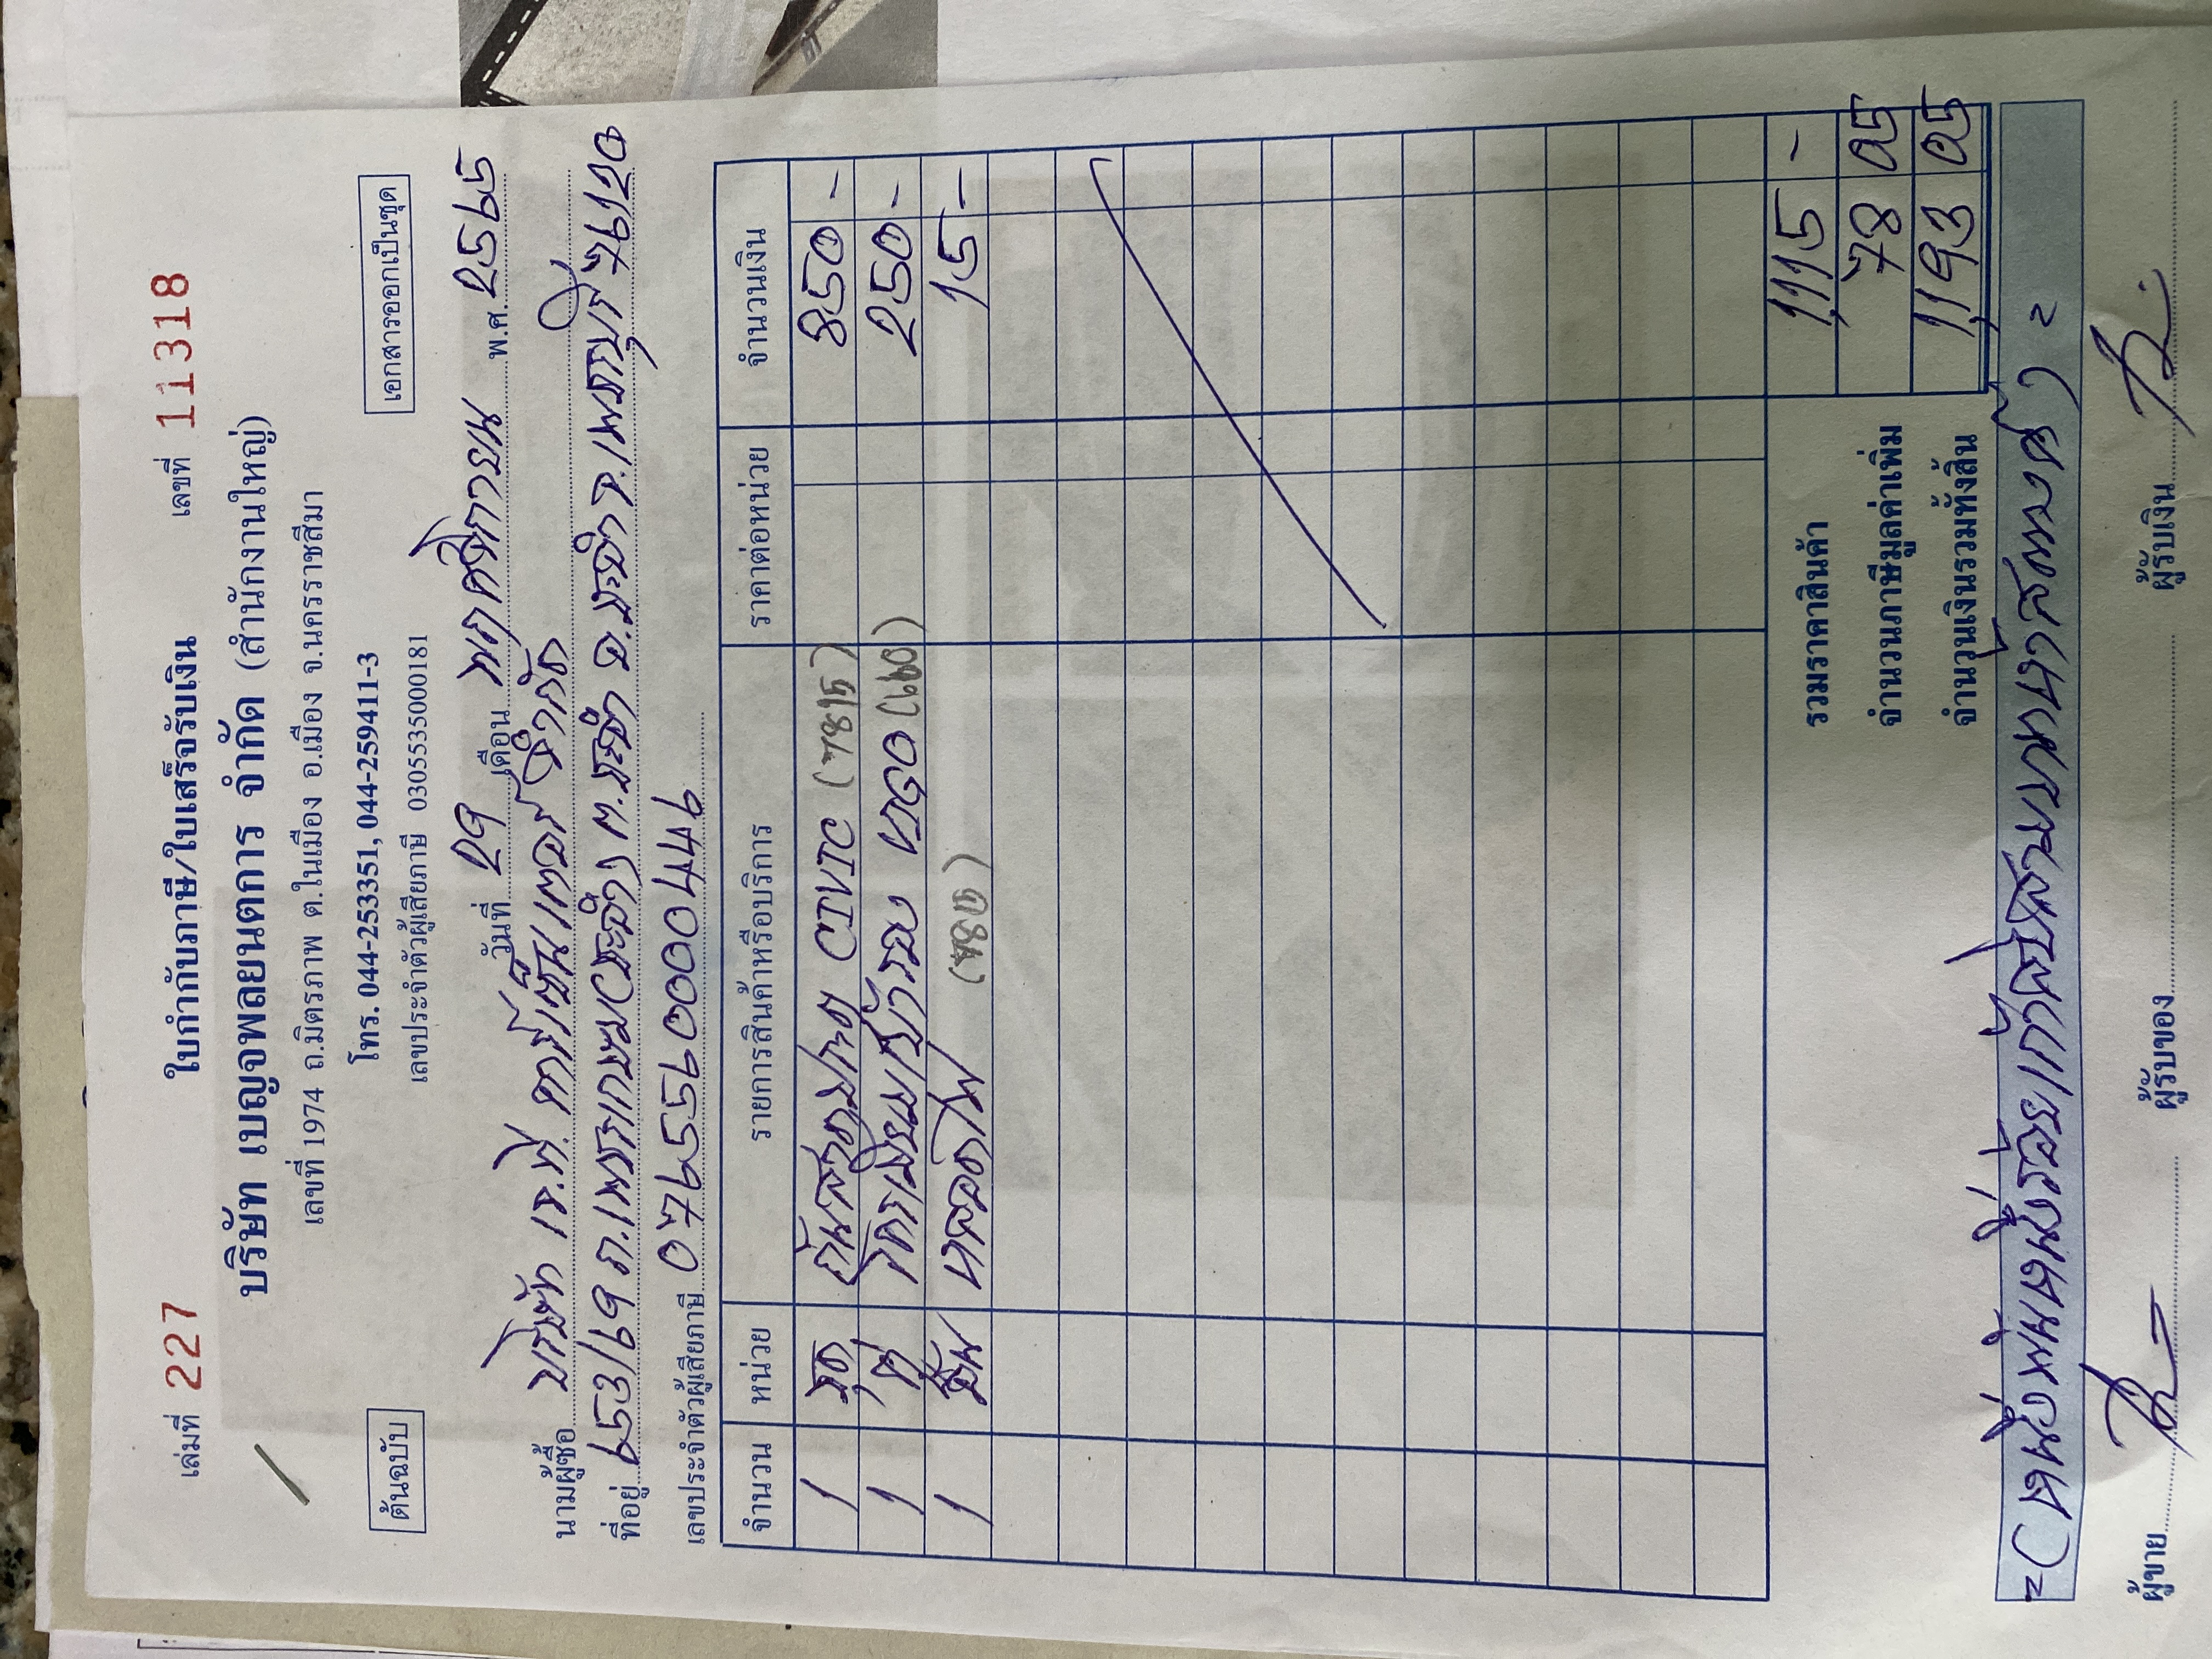 เล่มที่ 227 ใบกำกับภาษี/ใบเสร็จรับเงิน เลขที่ 11318
บริษัท เบญจพลยนตการ จำกัด (สำนักงานใหญ่)
เลขที่ 1974 ถ.มิตรภาพ ต.ในเมือง อ.เมือง จ.นครราชสีมา
โทร. 044-253351, 044-259411-3
ต้นฉบับ เอกสารออกเป็นชุด
เลขประจำตัวผู้เสียภาษี 0305535000181
วันที่ 29 เดือน พฤศจิกายน พ.ศ. 2565
นามผู้ซื้อ บริษัท เจ.ที. คาร์เซ็นเตอร์ จำกัด
ที่อยู่ 953/69 ถ.เพชรเกษม ต.ชะอำ อ.ชะอำ จ.เพชรบุรี 76120
เลขประจำตัวผู้เสียภาษี 0765597000449
จำนวน หน่วย รายการสินค้าหรือบริการ ราคาต่อหน่วย จำนวนเงิน
1 ชุด CIVIC 850 -
1 ตัว VIGO 250 -
1 หลอด 15 -
รวมราคาสินค้า 1,115 -
จำนวนภาษีมูลค่าเพิ่ม 78 05
จำนวนเงินรวมทั้งสิ้น 1,193 05
=(หนึ่งพันหนึ่งร้อยเก้าสิบสามบาทห้าสตางค์)=
ผู้ขาย ผู้รับของ ผู้รับเงิน